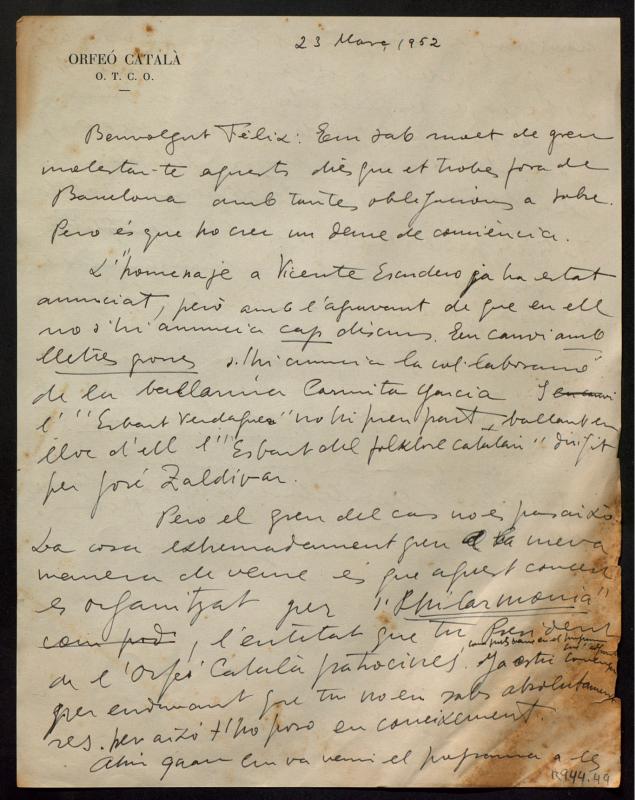 23 Març 1952
ORFEÓ CATALÀ
O. T. C. O.
Benvolgut Fèlix: Em sab molt de greu
molestar-te aquests dies que et trobes fora de
Barcelona amb tantes obligacions a sobre.
Pero és que ho crec un deure de conciència.
L'"homenaje a Vicente Escudero ja ha estat
anunciat, però amb l'agravant de que en ell
no s'hi anuncia cap discurs. En canvi amb
lletres grosses s'hi anuncia la col·laboració
de la ballarina Carmita Garcia I en canvi
l'"Esbart Verdaguer" no hi pren part, ballant en
lloc d'ell l'"Esbart del folklore catalán" dirigit
per José Zaldívar.
Pero el greu del cas no es pas això.
La cosa extremadament greu a la meva
manera de veure és que aquest concert
es organitzat per "Philarmonia"
com pod, l'entitat que tu President
com pots veure en el programa
de l'Orfeó Català patrocines. Ja estic
per endavant que tu no en sabs absolutament
res. per això t'ho poso en coneixement.
Ahir quan em va venir el programa a les
R944.49